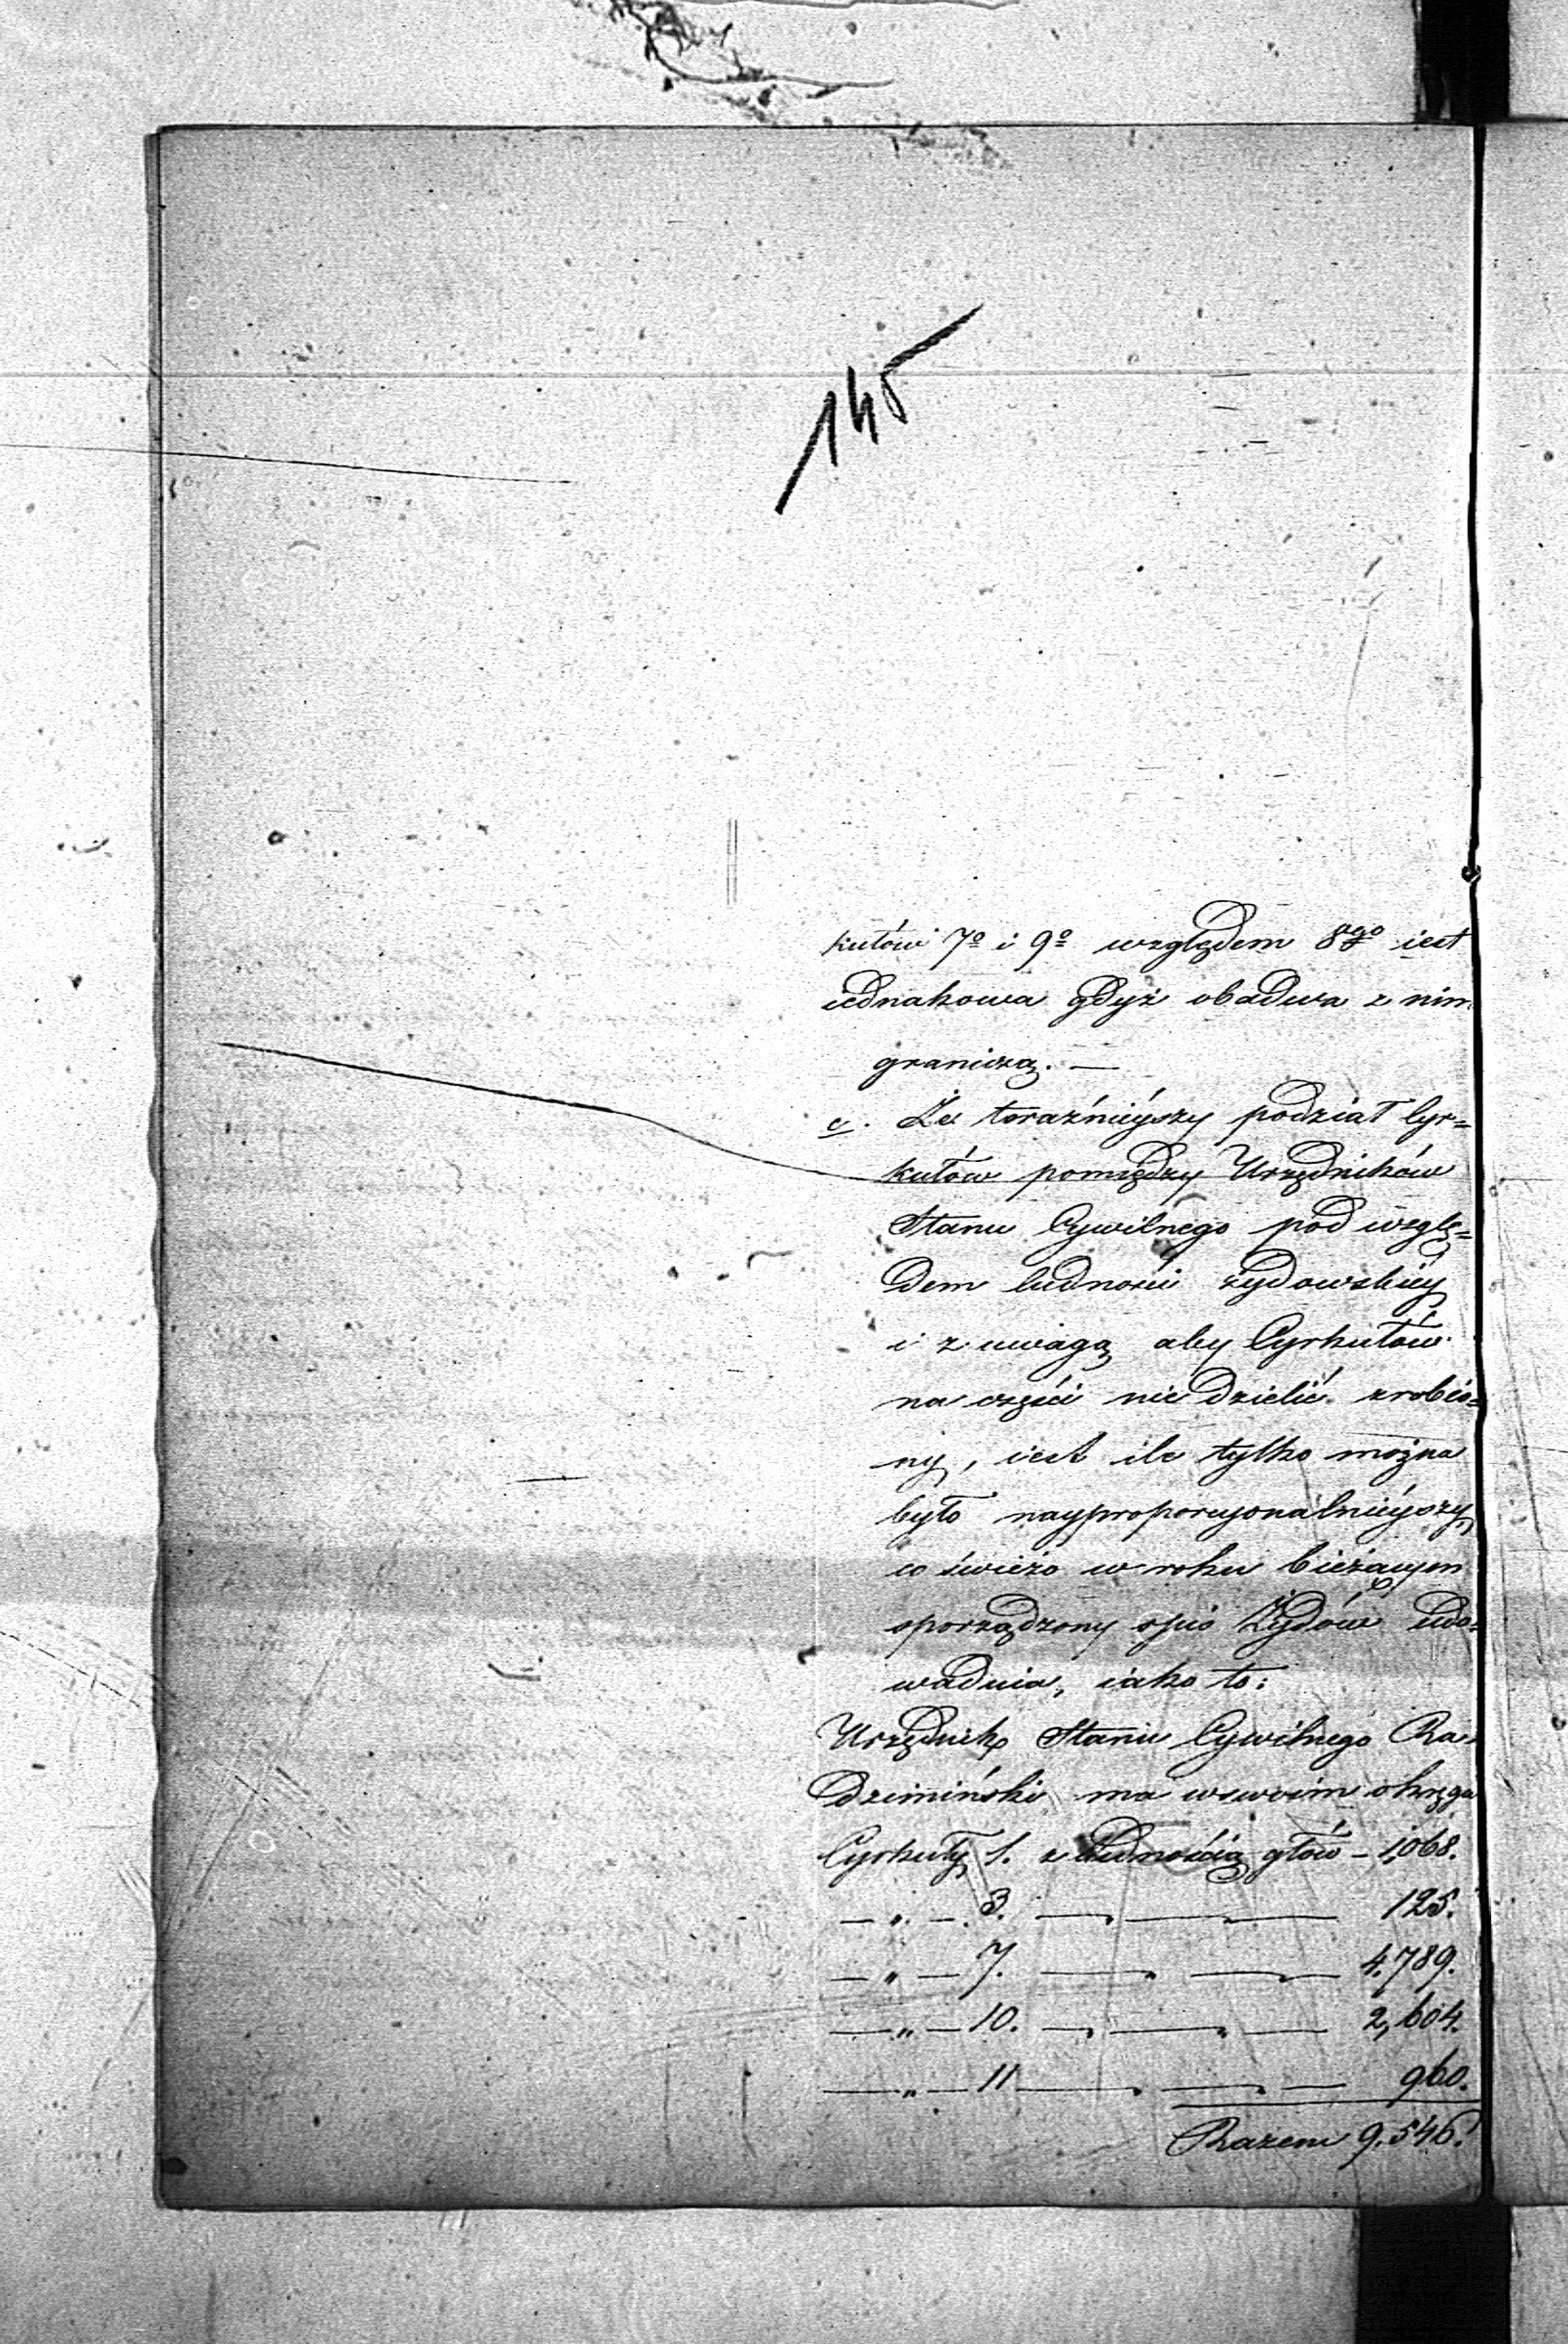 145
kułów 7º i 9º względem 8go iest
iednakowa gdyż obadwa z nim
graniczą. —
c. Że teraźnieyszy podział Cyr=
kułów pomiędzy Urzędników
Stanu Cywilnego pod wzglę=
dem ludności żydowskiéy
i z uwagą aby Cyrkułów
na części nie dzielić zrobio=
ny, iest ile tylko można
było nayproporcyonalnieyszy,
co świeżo w roku bieżącym
sporządzony spis Żydów udo=
wadnia, iako to:
Urzędnik Stanu Cywilnego Ra=
dzimiński ma w swoim okręgu
Cyrkuły 1. z ludnością głów — 1,068.
— „ — 3. — „ — „ — 125.
— „ — 7. — „ — „ — 4.789.
— „ — 10. — „ — „ — 2,604.
— „ — 11 — „ — „ — 960.
Razem 9.546.